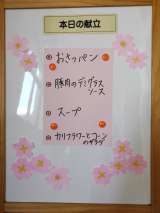 本日の献立
◎ おさつパン
◎ 豚肉のデミグラス
ソース
◎ スープ
◎ カリフラワーとコーン
のサラダ